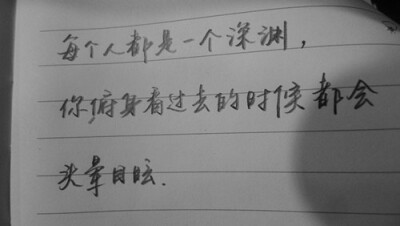 每个人都是一个深渊，
你俯身看过去的时候都会
头晕目眩.